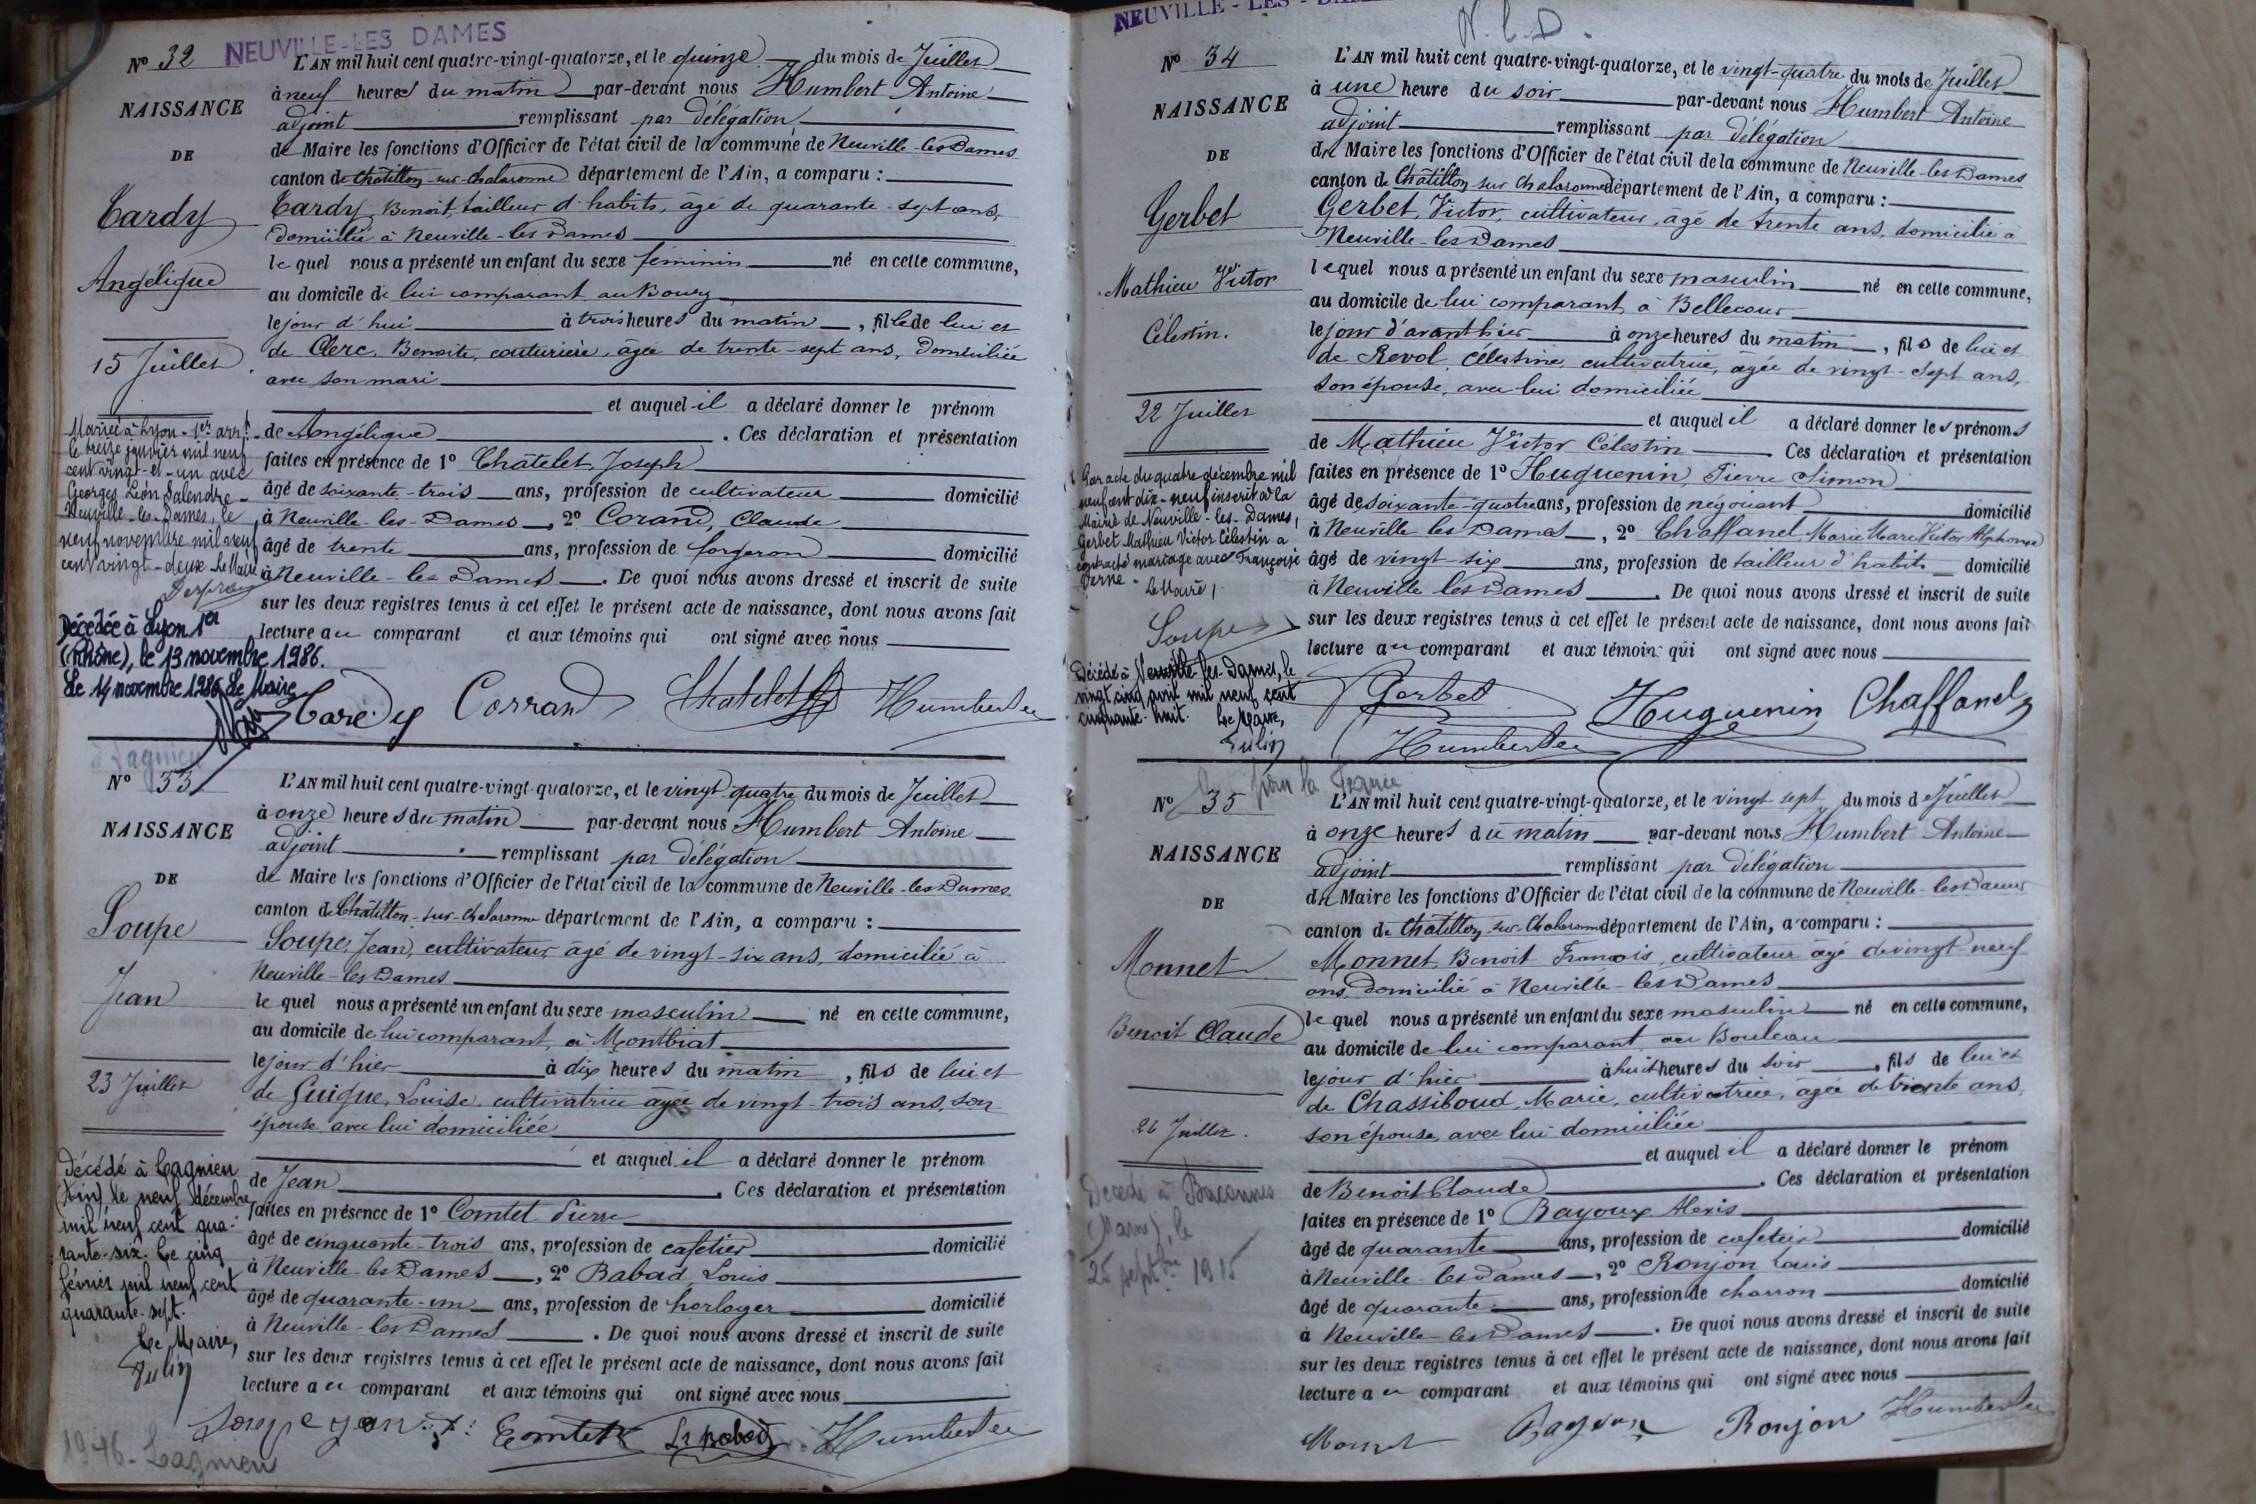 NEUVILLE-LES DAMES
N° 32
NAISSANCE
DE
Tardy
Angélique
15 Juillet
Mariée à Lyon - 1er arrt
le treize janvier mil neuf
cent vingt-et-un avec
Georges Léon Salendre -
Neuville-les-Dames, le
neuf novembre mil neuf
cent vingt-deux - Le Maire
Décédée à Lyon 1er
(Rhône), le 13 novembre 1986.
Le 14 novembre 1986 Le Maire
L'AN mil huit cent quatre-vingt-quatorze, et le quinze du mois de Juillet
à neuf heures du matin par-devant nous Humbert Antoine
adjoint remplissant par délégation
de Maire les fonctions d'Officier de l'état civil de la commune de Neuville-les-Dames
canton de Châtillon-sur-Chalaronne département de l'Ain, a comparu :
Tardy, Benoit, tailleur d'habits, âgé de quarante-sept ans,
domicilié à Neuville-les-Dames
le quel nous a présenté un enfant du sexe féminin né en cette commune,
au domicile de lui comparant au Bourg
le jour d'hui à trois heures du matin, fille de lui et
de Clerc, Benoite, couturière, âgée de trente-sept ans, domiciliée
avec son mari
et auquel il a déclaré donner le prénom
de Angélique. Ces déclaration et présentation
faites en présence de 1° Châtelet, Joseph
âgé de soixante-trois ans, profession de cultivateur domicilié
à Neuville-les-Dames, 2° Corand, Claude
âgé de trente ans, profession de forgeron domicilié
à Neuville-les-Dames. De quoi nous avons dressé et inscrit de suite
sur les deux registres tenus à cet effet le présent acte de naissance, dont nous avons fait
lecture au comparant et aux témoins qui ont signé avec nous
Tardy Corrand Chatelet Humbert
à Lagnieu
N° 33
NAISSANCE
DE
Soupe
Jean
23 Juillet
Décédé à Lagnieu
(Ain) le neuf décembre
mil neuf cent qua-
rante-six. Le cinq
février mil neuf cent
quarante-sept.
Le Maire,
Tulin
L'AN mil huit cent quatre-vingt-quatorze, et le vingt-quatre du mois de Juillet
à onze heures du matin par-devant nous Humbert Antoine
adjoint remplissant par délégation
de Maire les fonctions d'Officier de l'état civil de la commune de Neuville-les-Dames
canton de Châtillon-sur-Chalaronne département de l'Ain, a comparu :
Soupe, Jean, cultivateur, âgé de vingt-six ans, domicilié à
Neuville-les-Dames
le quel nous a présenté un enfant du sexe masculin né en cette commune,
au domicile de lui comparant, à Montbiat
le jour d'hier à dix heures du matin, fils de lui et
de Guigue, Louise, cultivatrice âgée de vingt-trois ans, son
épouse avec lui domiciliée
et auquel il a déclaré donner le prénom
de Jean. Ces déclaration et présentation
faites en présence de 1° Comtet Pierre
âgé de cinquante-trois ans, profession de cafetier domicilié
à Neuville-les-Dames, 2° Babad, Louis
âgé de quarante-un ans, profession de horloger domicilié
à Neuville-les-Dames. De quoi nous avons dressé et inscrit de suite
sur les deux registres tenus à cet effet le présent acte de naissance, dont nous avons fait
lecture au comparant et aux témoins qui ont signé avec nous
Soupe jean Comtet Ls Babad Humbert
1946 - Lagnieu
NEUVILLE - LES - DAMES
N. L. D.
N° 34
NAISSANCE
DE
Gerbet
Mathieu Victor
Célestin.
22 Juillet
Par acte du quatre décembre mil
neuf cent dix-neuf inscrit à la
Mairie de Neuville-les-Dames,
Gerbet Mathieu Victor Célestin a
contracté mariage avec Françoise
Le Maire,
Soupe
Décédé à Neuville-les-Dames, le
vingt cinq avril mil neuf cent
cinquante-huit.
Le Maire,
Tulin
L'AN mil huit cent quatre-vingt-quatorze, et le vingt-quatre du mois de Juillet
à une heure du soir par-devant nous Humbert Antoine
adjoint remplissant par délégation
du Maire les fonctions d'Officier de l'état civil de la commune de Neuville-les-Dames
canton de Châtillon sur Chalaronne département de l'Ain, a comparu :
Gerbet, Victor, cultivateur, âgé de trente ans, domicilié à
Neuville-les-Dames
lequel nous a présenté un enfant du sexe masculin né en cette commune,
au domicile de lui comparant, à Bellecour
le jour d'avant hier à onze heures du matin, fils de lui et
de Revol, Célestine, cultivatrice, âgée de vingt-sept ans,
son épouse, avec lui domiciliée
et auquel il a déclaré donner les prénoms
de Mathieu Victor Célestin Ces déclaration et présentation
faites en présence de 1° Huguenin, Pierre Simon
âgé de soixante-quatre ans, profession de négociant domicilié
à Neuville les Dames, 2° Chaffanel Marie Marc Victor Alphonse
âgé de vingt-six ans, profession de tailleur d'habits domicilié
à Neuville les Dames. De quoi nous avons dressé et inscrit de suite
sur les deux registres tenus à cet effet le présent acte de naissance, dont nous avons fait
lecture au comparant et aux témoins qui ont signé avec nous
Gerbet Huguenin Chaffanel
Humbert
pour la France
N° 35
NAISSANCE
DE
Monnet
Benoit Claude
26 Juillet.
Décédé à Baconnes
(Marne), le
25 septbre 1915
L'AN mil huit cent quatre-vingt-quatorze, et le vingt sept du mois de Juillet
à onze heures du matin par-devant nous Humbert Antoine
adjoint remplissant par délégation
du Maire les fonctions d'Officier de l'état civil de la commune de Neuville-les-Dames
canton de Châtillon-sur-Chalaronne département de l'Ain, a comparu :
Monnet, Benoit François, cultivateur âgé de vingt-neuf
ans, domicilié à Neuville-les-Dames
le quel nous a présenté un enfant du sexe masculin né en cette commune,
au domicile de lui comparant au Bouleau
le jour d'hier à huit heures du soir, fils de lui et
de Chassiboud, Marie, cultivatrice, âgée de trente ans,
son épouse, avec lui domiciliée
et auquel il a déclaré donner le prénom
de Benoit Claude. Ces déclaration et présentation
faites en présence de 1° Bayoux Alexis
âgé de quarante ans, profession de cafetier domicilié
à Neuville-les-Dames, 2° Ronjon Louis
âgé de quarante ans, profession de charron domicilié
à Neuville-les-Dames. De quoi nous avons dressé et inscrit de suite
sur les deux registres tenus à cet effet le présent acte de naissance, dont nous avons fait
lecture au comparant et aux témoins qui ont signé avec nous
Monnet Bayoux Ronjon Humbert